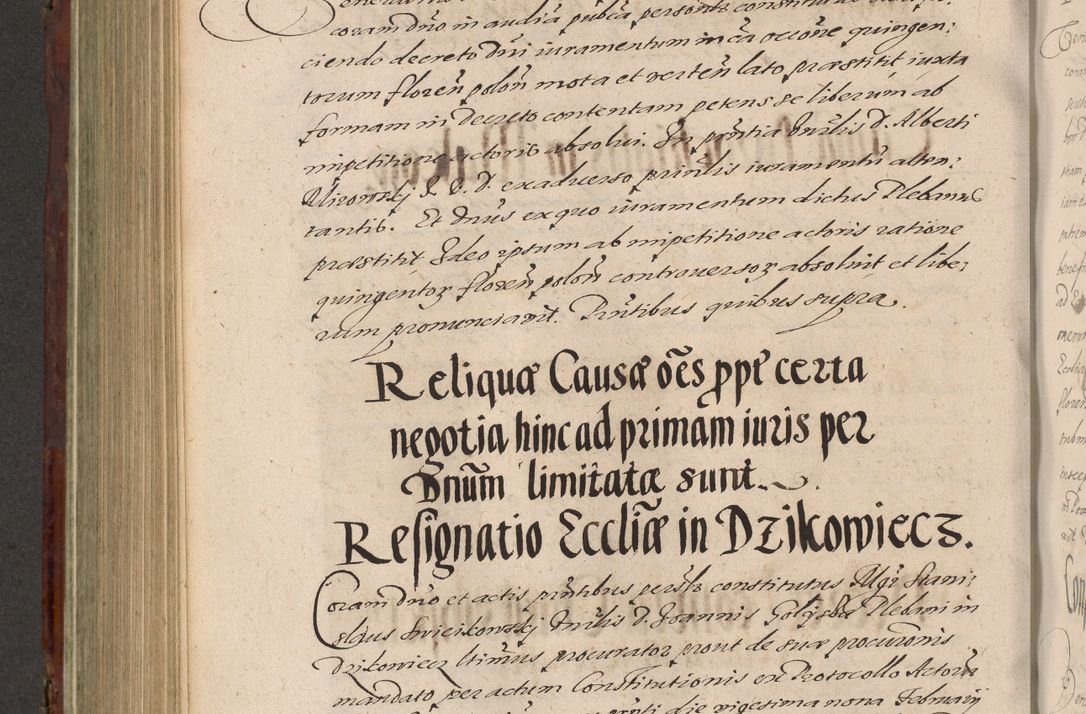 coram dno in audia pubca personr constitutus
ciendo decreto Dni iuramentum in ca occone quingen:
torum floren polon mota et verten lato præstitit iuxta
formam in Decreto contentam petens se liberum ab
impetitione actoris absolui. In pntia Gnrlis D. Alberti
Mirowskj I. V. D. ex aduerso prinlis iuramentu alten:
tantis. Et Dnus ex quo iuramentum dictus Plebanus
præstitit Ideo ipsum ab impetitione actoris ratione
quingentoꝝ floren polon controuersoꝝ absoluit et libe:
rum pronunciauit. Pntibus quibus supra.
Reliquæ Causæ oēs ꝓpt certa
negotia hinc ad primam iuris per
Dnūm limitatæ sunt.
Resignatio Eccliæ in Dzikowiecz.
Coram dno et actis pntibus persolr constitutus Mgr Stani:
slaus Swieikowskj Gnrlis D. Joannis Plebani in
Dzikowiecz ltimus procurator prout de suæ procuronis
mandato per actum Constitutionis ex Protocollo Actorum
pnti die vigesima nona Februarij